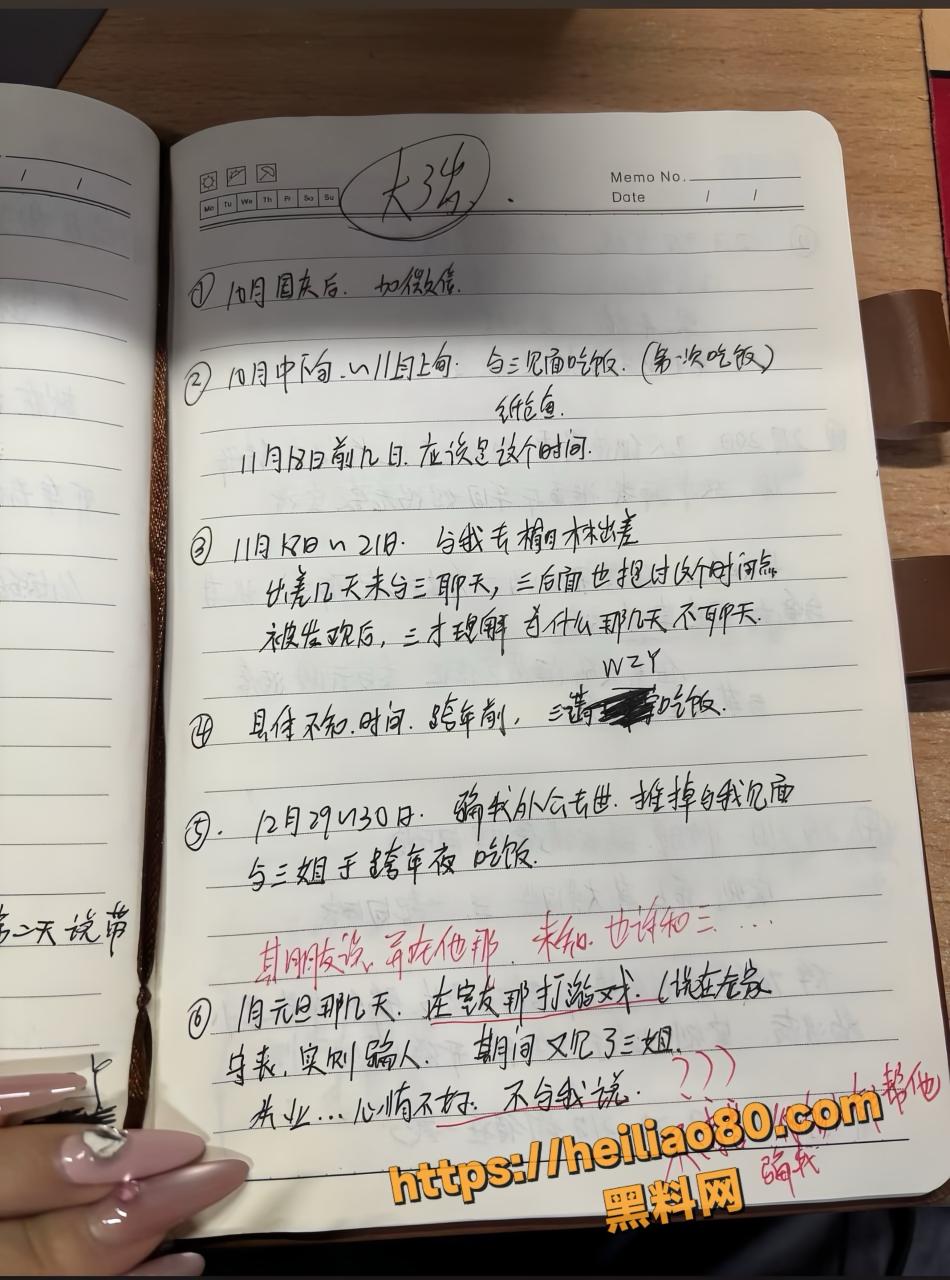 Memo No.
Mo Tu We Th Fr Sa Su
Date / /
大3岁.
① 10月国庆后. 加微信.
② 10月中下旬~11月上旬. 与三见面吃饭. (第一次吃饭)
纸包鱼.
11月18日前几日. 应该是这个时间.
③ 11月18日~21日. 与我去榆林出差
出差几天未与三聊天, 三后面也提过这个时间点.
被发现后, 三才理解 为什么那几天不聊天.
WZY
④ 具体不知.时间. 跨年前, 三请 吃饭.
⑤. 12月29~30日. 骗我外公去世. 推掉与我见面
与三姐于跨年夜吃饭.
第二天说带
其朋友说, 并在他那. 未知. 也许和三...
⑥ 1月元旦那几天. 在室友那打游戏. (说在老家
守丧, 实则骗人. 期间又见了三姐.
失业... 心情不好. 不与我说.
帮他
骗我
https://heiliao80.com
黑料网